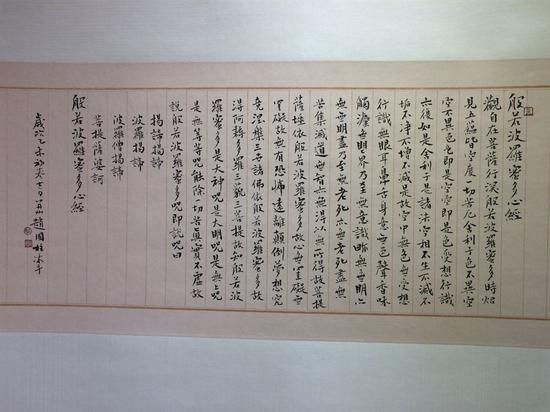 般若波羅蜜多心經
觀自在菩薩行深般若波羅蜜多時炤
見五蘊皆空度一切苦厄舍利子色不異空
空不異色色即是空空即是色受想行識
亦復如是舍利子是諸法空相不生不滅不
垢不淨不增不減是故空中無色無受想
行識無眼耳鼻舌身意無色聲香味
觸法無眼界乃至無意識界無無明亦
無無明盡乃至無老死亦無老死盡無
苦集滅道無智亦無得以無所得故菩提
薩埵依般若波羅蜜多故心無罣礙無
罣礙故無有恐怖遠離顛倒夢想究
竟涅槃三世諸佛依般若波羅蜜多故
得阿耨多羅三藐三菩提故知般若波
羅蜜多是大神呪是大明呪是無上呪
是無等等呪能除一切苦真實不虛故
說般若波羅蜜多呪即說呪曰
揭諦揭諦
波羅揭諦
波羅僧揭諦
菩提薩婆訶
般若波羅蜜多心經
歲次乙未初冬 趙國柱沐手